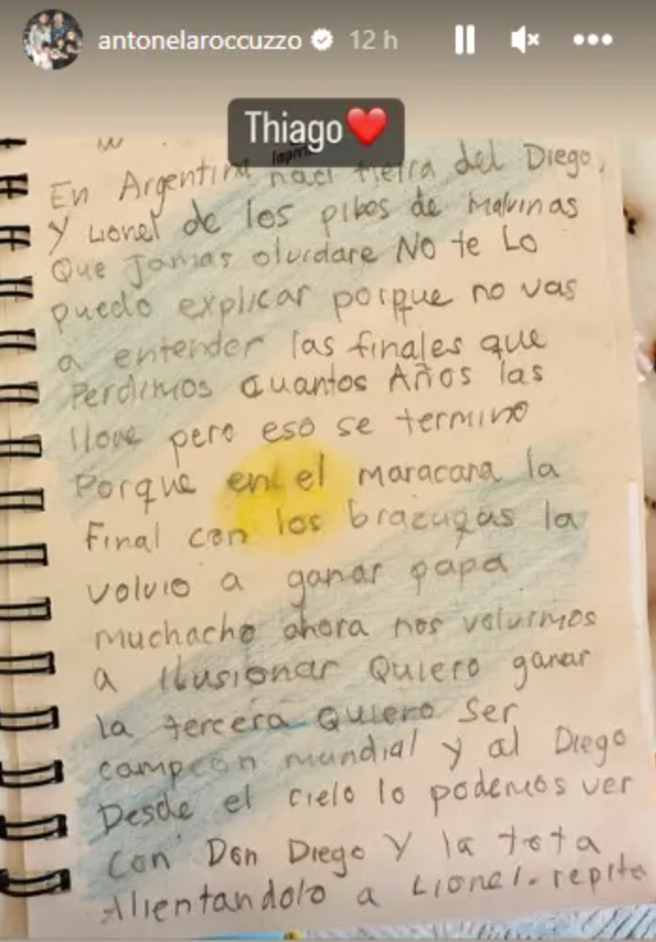 antonelaroccuzzo 12 h
Thiago❤️
En Argentina naci tierra del Diego,
y Lionel de los pibes de malvinas
Que Jamas olvidare No te Lo
puedo explicar porque no vas
a entender las finales que
Perdimos cuantos Años las
llore pero eso se termino
Porque en el maracana la
final con los brazugas la
volvio a ganar papa
muchacho ahora nos volvimos
a ilusionar Quiero ganar
la tercera Quiero Ser
campeon mundial y al Diego
Desde el cielo lo podemos ver
con Don Diego Y la tota
Alientandolo a Lionel. repita